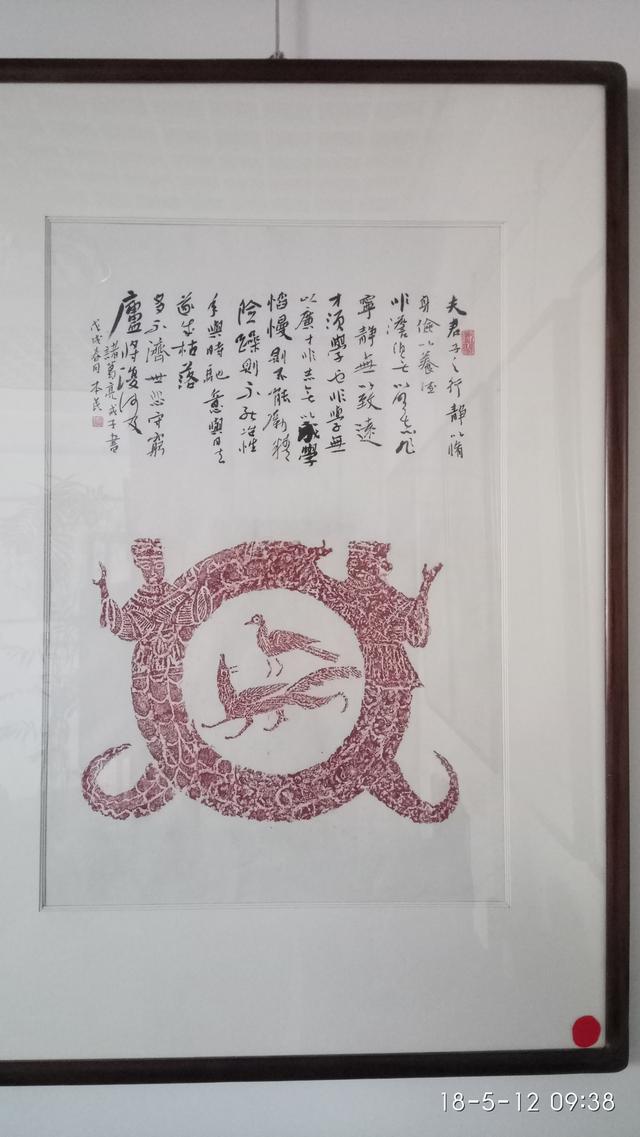 夫君子之行靜以脩
身儉以養德
非澹泊無以明志非
寧靜無以致遠
才須學也非學無
以廣才非志無以成學
慆慢則不能勵精
險躁則不能冶性
年與時馳意與日去
遂成枯落
多不濟世悲守窮
廬將復何及
諸葛亮戒子書
戊戌春月本民
18-5-12 09:38